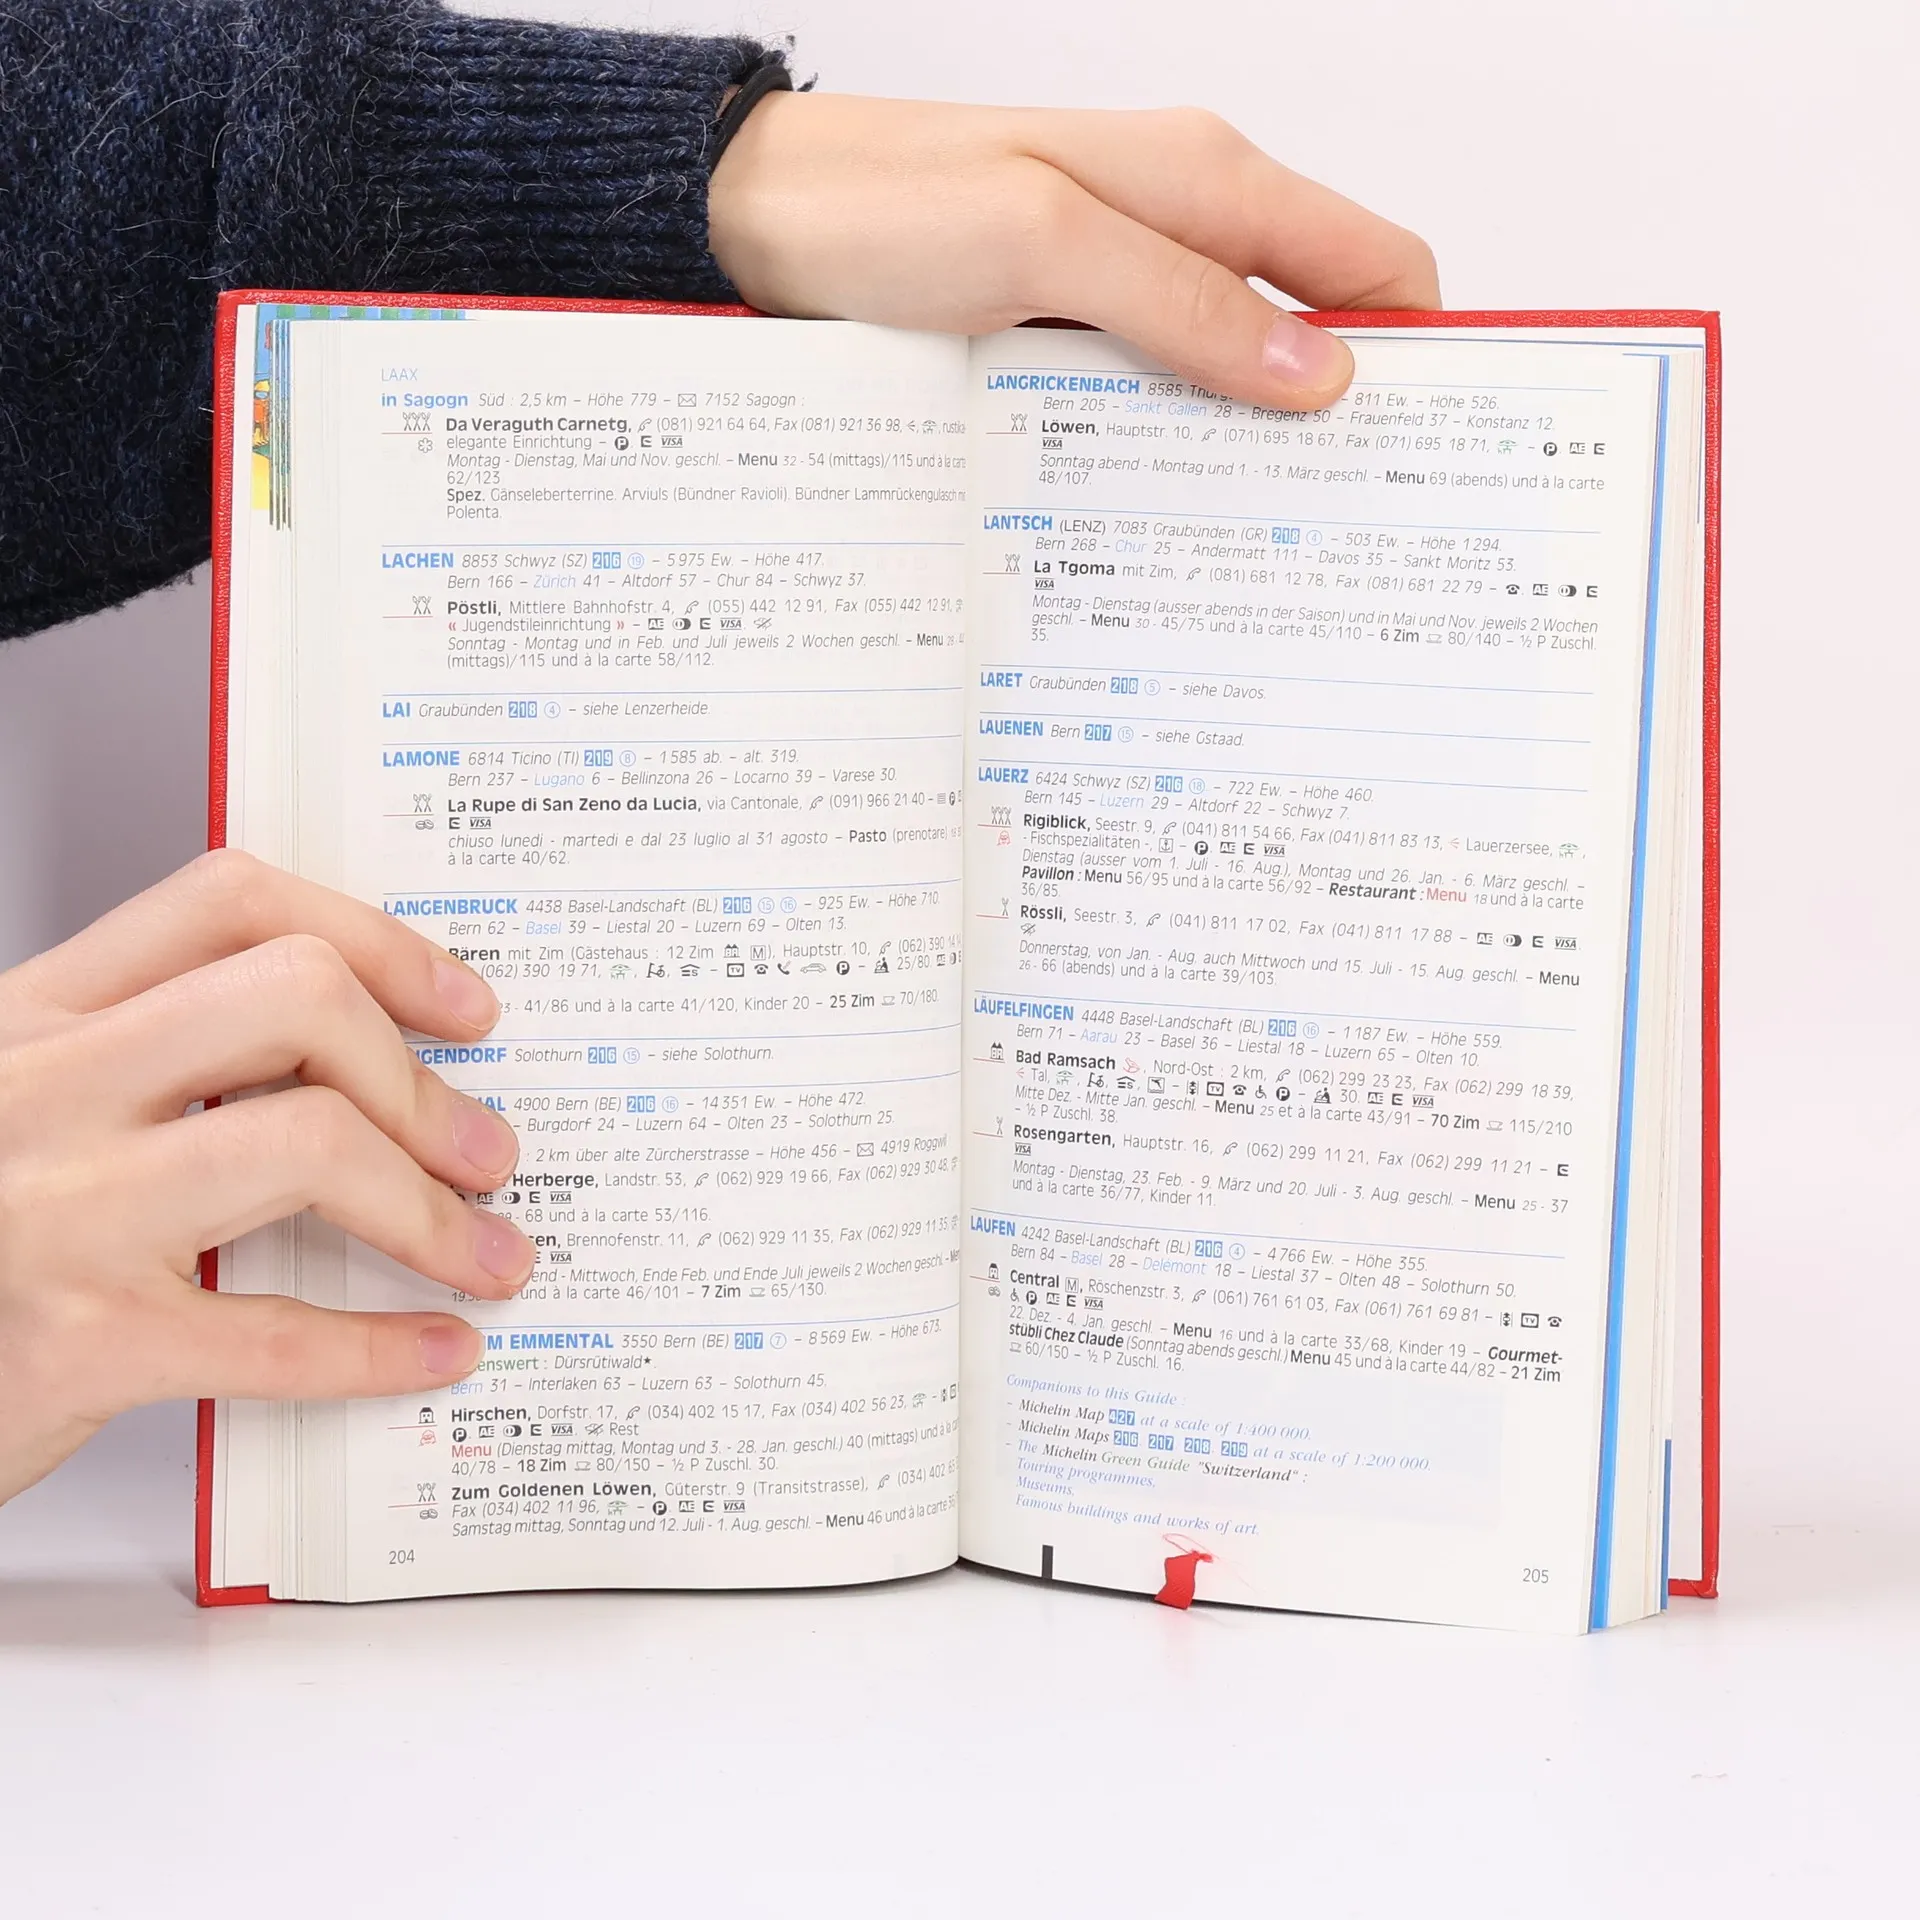 LAAX
in Sagogn Süd : 2,5 km – Höhe 779 – 7152 Sagogn :
Da Veraguth Carnetg, (081) 921 64 64, Fax (081) 921 36 98,
elegante Einrichtung – P E VISA
Montag - Dienstag, Mai und Nov. geschl. – Menu 32 - 54 (mittags)/115 und à la carte
62/123
Spez. Gänseleberterrine. Arviuls (Bündner Ravioli). Bündner Lammrückengulasch
Polenta.
LACHEN 8853 Schwyz (SZ) 216 19 – 5 975 Ew. – Höhe 417.
Bern 166 – Zürich 41 – Altdorf 57 – Chur 84 – Schwyz 37.
Pöstli, Mittlere Bahnhofstr. 4, (055) 442 12 91, Fax (055) 442 12 91,
« Jugendstileinrichtung » – AE E VISA
Sonntag - Montag und in Feb. und Juli jeweils 2 Wochen geschl. – Menu
(mittags)/115 und à la carte 58/112.
LAI Graubünden 218 4 – siehe Lenzerheide.
LAMONE 6814 Ticino (TI) 219 8 – 1 585 ab. – alt. 319.
Bern 237 – Lugano 6 – Bellinzona 26 – Locarno 39 – Varese 30.
La Rupe di San Zeno da Lucia, via Cantonale, (091) 966 21 40 – P
E VISA
chiuso lunedi - martedi e dal 23 luglio al 31 agosto – Pasto (prenotare)
à la carte 40/62.
LANGENBRUCK 4438 Basel-Landschaft (BL) 216 15 16 – 925 Ew. – Höhe 710.
Bern 62 – Basel 39 – Liestal 20 – Luzern 69 – Olten 13.
Bären mit Zim (Gästehaus : 12 Zim M), Hauptstr. 10, (062) 390
(062) 390 19 71, – TV P – 25/80.
- 41/86 und à la carte 41/120, Kinder 20 – 25 Zim 70/180.
GENDORF Solothurn 216 15 – siehe Solothurn.
AL 4900 Bern (BE) 216 16 – 14 351 Ew. – Höhe 472.
– Burgdorf 24 – Luzern 64 – Olten 23 – Solothurn 25.
: 2 km über alte Zürcherstrasse – Höhe 456 – 4919 Roggwil
Herberge, Landstr. 53, (062) 929 19 66, Fax (062) 929 30 48,
AE E VISA
- 68 und à la carte 53/116.
sen, Brennofenstr. 11, (062) 929 11 35, Fax (062) 929 11 35,
E VISA
end - Mittwoch, Ende Feb. und Ende Juli jeweils 2 Wochen geschl. –
und à la carte 46/101 – 7 Zim 65/130.
M EMMENTAL 3550 Bern (BE) 217 7 – 8 569 Ew. – Höhe 673.
enswert : Dürsrütiwald★.
Bern 31 – Interlaken 63 – Luzern 63 – Solothurn 45.
Hirschen, Dorfstr. 17, (034) 402 15 17, Fax (034) 402 56 23, –
P. AE E VISA. Rest
Menu (Dienstag mittag, Montag und 3. - 28. Jan. geschl.) 40 (mittags) und à la
40/78 – 18 Zim 80/150 – ½ P Zuschl. 30.
Zum Goldenen Löwen, Güterstr. 9 (Transitstrasse), (034) 402
Fax (034) 402 11 96, – P. AE E VISA
Samstag mittag, Sonntag und 12. Juli - 1. Aug. geschl. – Menu 46 und à la carte
204
LANGRICKENBACH 8585 – 811 Ew. – Höhe 526.
Bern 205 – Sankt Gallen 28 – Bregenz 50 – Frauenfeld 37 – Konstanz 12.
Löwen, Hauptstr. 10, (071) 695 18 67, Fax (071) 695 18 71, – P. AE E
VISA
Sonntag abend - Montag und 1. - 13. März geschl. – Menu 69 (abends) und à la carte
48/107.
LANTSCH (LENZ) 7083 Graubünden (GR) 218 4 – 503 Ew. – Höhe 1 294.
Bern 268 – Chur 25 – Andermatt 111 – Davos 35 – Sankt Moritz 53.
La Tgoma mit Zim, (081) 681 12 78, Fax (081) 681 22 79 – AE E
VISA
Montag - Dienstag (ausser abends in der Saison) und in Mai und Nov. jeweils 2 Wochen
geschl. – Menu 30 - 45/75 und à la carte 45/110 – 6 Zim 80/140 – ½ P Zuschl.
35.
LARET Graubünden 218 5 – siehe Davos.
LAUENEN Bern 217 15 – siehe Gstaad.
LAUERZ 6424 Schwyz (SZ) 216 18 – 722 Ew. – Höhe 460.
Bern 145 – Luzern 29 – Altdorf 22 – Schwyz 7.
Rigiblick, Seestr. 9, (041) 811 54 66, Fax (041) 811 83 13, Lauerzersee,
- Fischspezialitäten -, – P. AE E VISA
Dienstag (ausser vom 1. Juli - 16. Aug.), Montag und 26. Jan. - 6. März geschl. –
Pavillon : Menu 56/95 und à la carte 56/92 – Restaurant : Menu 18 und à la carte
36/85.
Rössli, Seestr. 3, (041) 811 17 02, Fax (041) 811 17 88 – AE E VISA.
Donnerstag, von Jan. - Aug. auch Mittwoch und 15. Juli - 15. Aug. geschl. – Menu
26 - 66 (abends) und à la carte 39/103.
LÄUFELFINGEN 4448 Basel-Landschaft (BL) 216 16 – 1 187 Ew. – Höhe 559.
Bern 71 – Aarau 23 – Basel 36 – Liestal 18 – Luzern 65 – Olten 10.
Bad Ramsach, Nord-Ost : 2 km, (062) 299 23 23, Fax (062) 299 18 39,
Tal, – TV P – 30. AE E VISA
Mitte Dez. - Mitte Jan. geschl. – Menu 25 et à la carte 43/91 – 70 Zim 115/210
– ½ P Zuschl. 38.
Rosengarten, Hauptstr. 16, (062) 299 11 21, Fax (062) 299 11 21 – E
VISA
Montag - Dienstag, 23. Feb. - 9. März und 20. Juli - 3. Aug. geschl. – Menu 25 - 37
und à la carte 36/77, Kinder 11.
LAUFEN 4242 Basel-Landschaft (BL) 216 4 – 4 766 Ew. – Höhe 355.
Bern 84 – Basel 28 – Delémont 18 – Liestal 37 – Olten 48 – Solothurn 50.
Central M, Röschenzstr. 3, (061) 761 61 03, Fax (061) 761 69 81 – TV
P AE E VISA
22. Dez. - 4. Jan. geschl. – Menu 16 und à la carte 33/68, Kinder 19 – Gourmet-
stübli Chez Claude (Sonntag abends geschl.) Menu 45 und à la carte 44/82 – 21 Zim
60/150 – ½ P Zuschl. 16.
Companions to this Guide :
– Michelin Map 427 at a scale of 1:400 000.
– Michelin Maps 216, 217, 218, 219 at a scale of 1:200 000.
– The Michelin Green Guide "Switzerland" :
Touring programmes,
Museums,
Famous buildings and works of art.
205